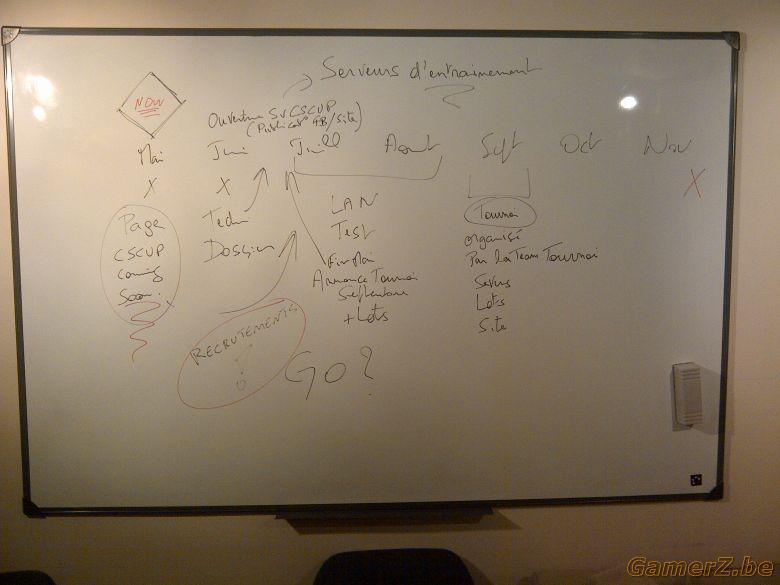 Serveurs d'entrainement
NOW
Ouverture SV CSCUP
(Publicat° FB/Site)
Mai Juin Juill Aout Sept Oct Nov
X X X
Page
CSCUP
Coming
Soon
Techn
Dossier
LAN
Test
Annonce Tournoi
Septembre
+ Lots
Tournoi
organisé
Par la Team Tournoi
Serveurs
Lots
Site
RECRUTEMENTS
!
GO?
GamerZ.be